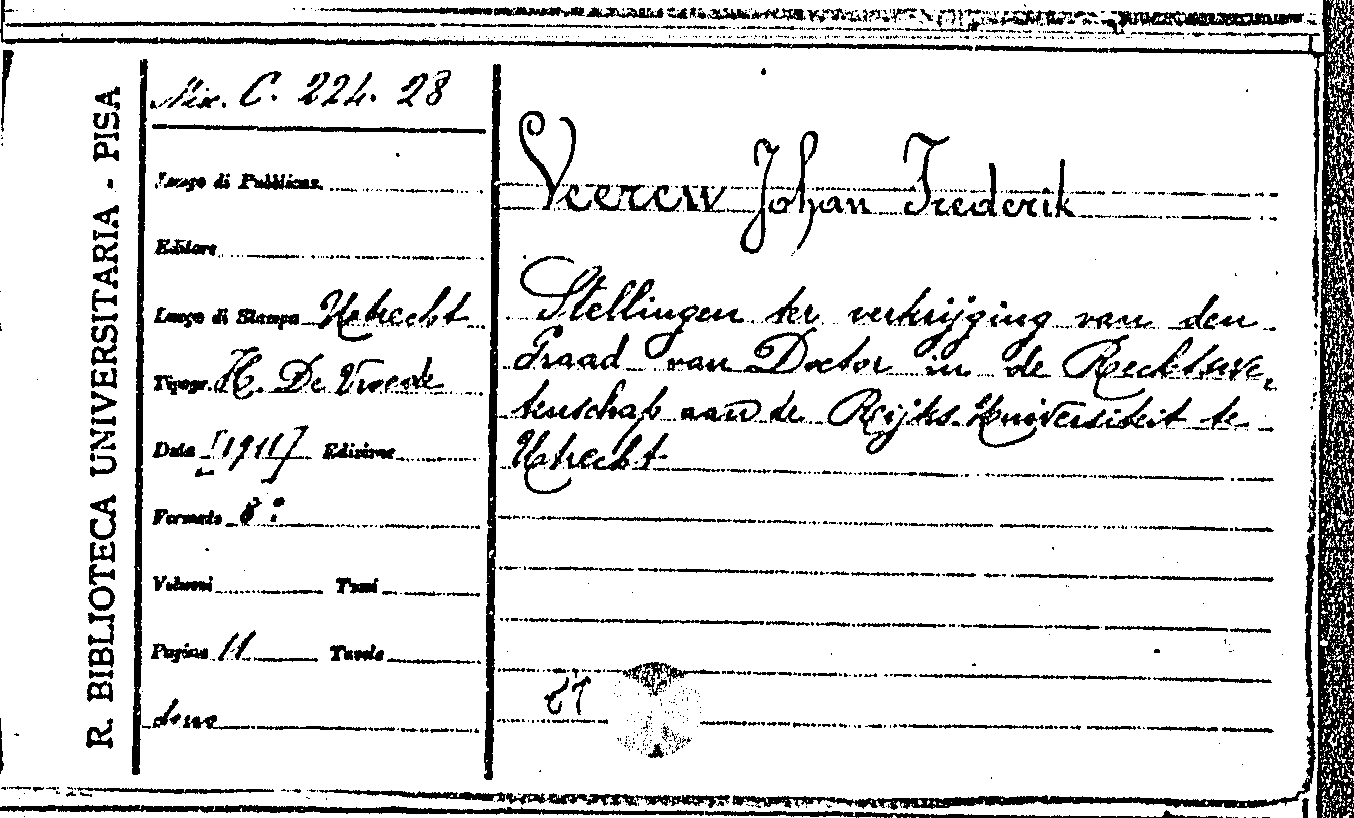 R. BIBLIOTECA UNIVERSITARIA - PISA
Misc. C. 224. 28
Luogo di Pubblicaz.
Editore
Luogo di Stampa Utrecht
Tipogr. H. De Vroede
Data [1911] Edizione
Formato 8°
Volumi Tomi
Pagine 11 Tavole
dono
Veerew Johan Frederik
Stellingen ter verkrijging van den
Graad van Doctor in de Rechtswe,
tenschap aan de Rijks-Universiteit te
Utrecht